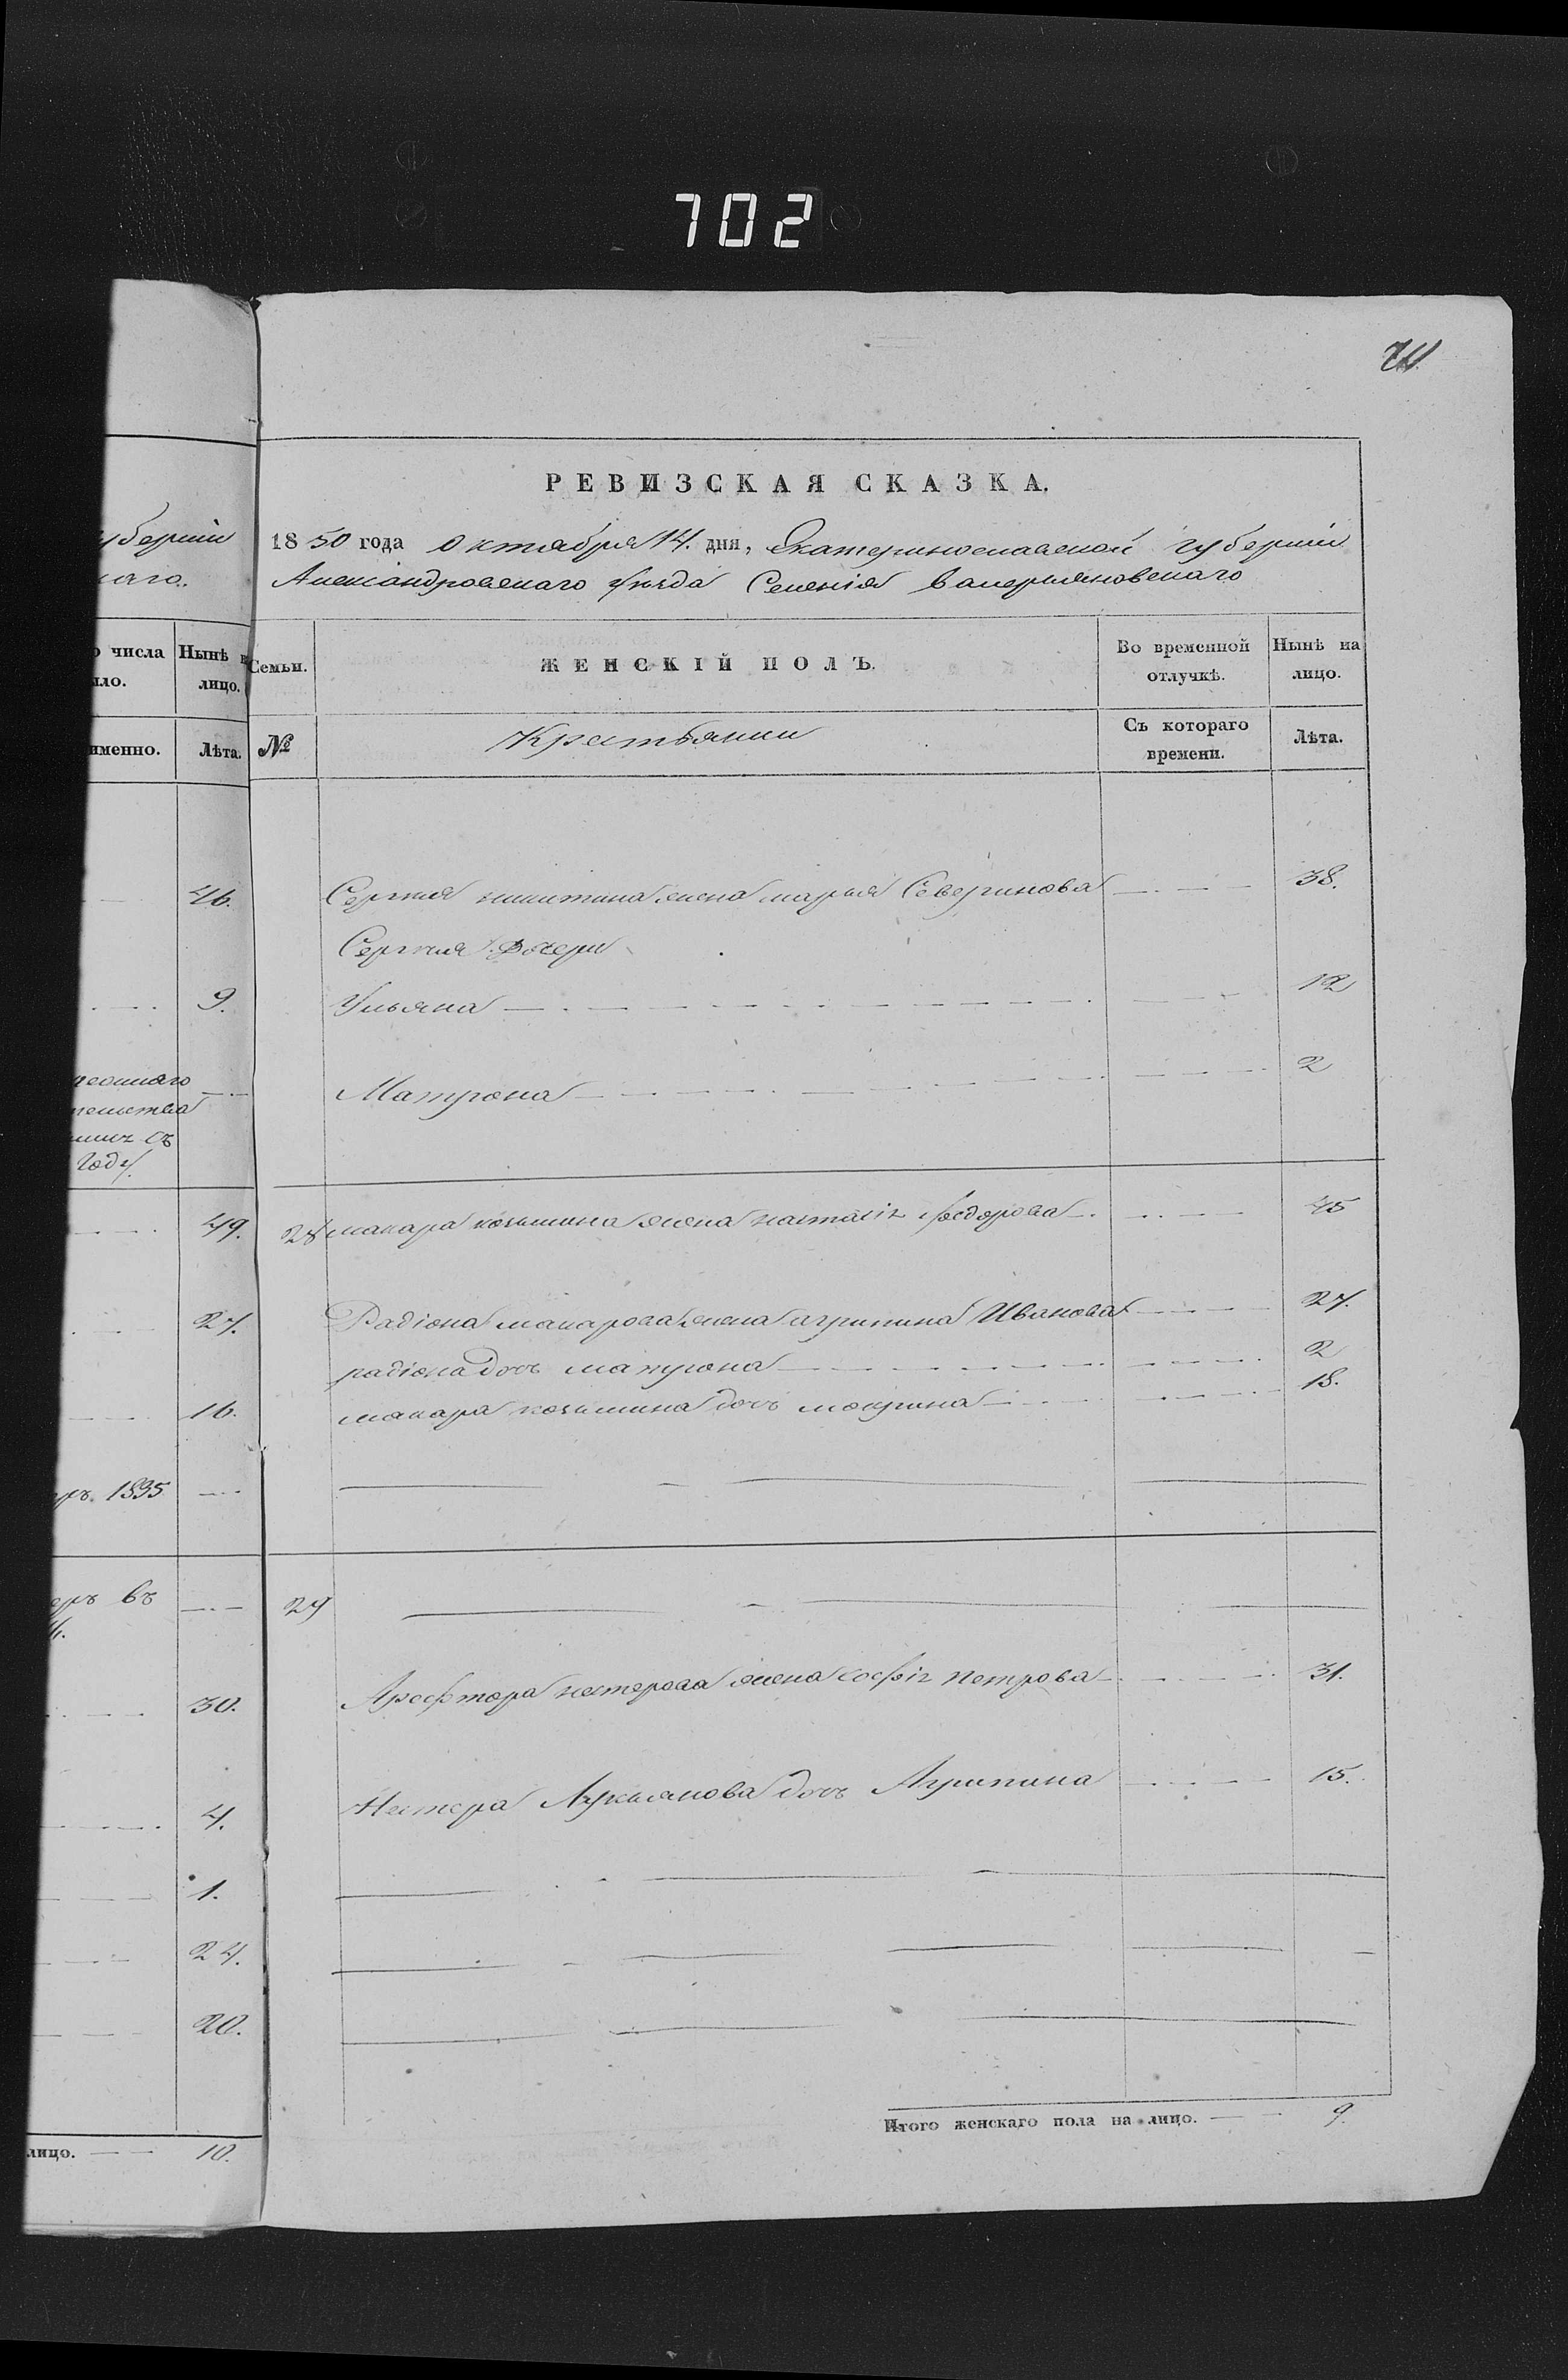 702
РЕВИЗСКАЯ СКАЗКА.
1850 года Октября 14. дня, Екатеринославской губерніи
Александровскаго уѣзда Селенія Валерьяновскаго
Семьи. ЖЕНСКІЙ ПОЛЪ. Во временной отлучкѣ. Нынѣ на лицо.
№ Крестьянки Съ котораго времени. Лѣта.
Сергѣя никитина жена марья Северинова 38.
Сергѣя дочери
Ульяна 12
Матрона 2
28 макара козьмина жена настасія федорова 45
Радіона макарова жена агрипина Иванова 27.
радіона дочь матрона 2
макара козьмина дочь мокрина 18.
29
нестерова жена софія петрова 31.
Нестера Лукьянова дочь Агрипина 15.
Итого женскаго пола на лицо. 9.
губерніи
числа Нынѣ
лицо.
именно. Лѣта.
46.
9.
году
49.
27.
16.
1835
въ
30.
4.
1.
24.
20.
лицо. 10.